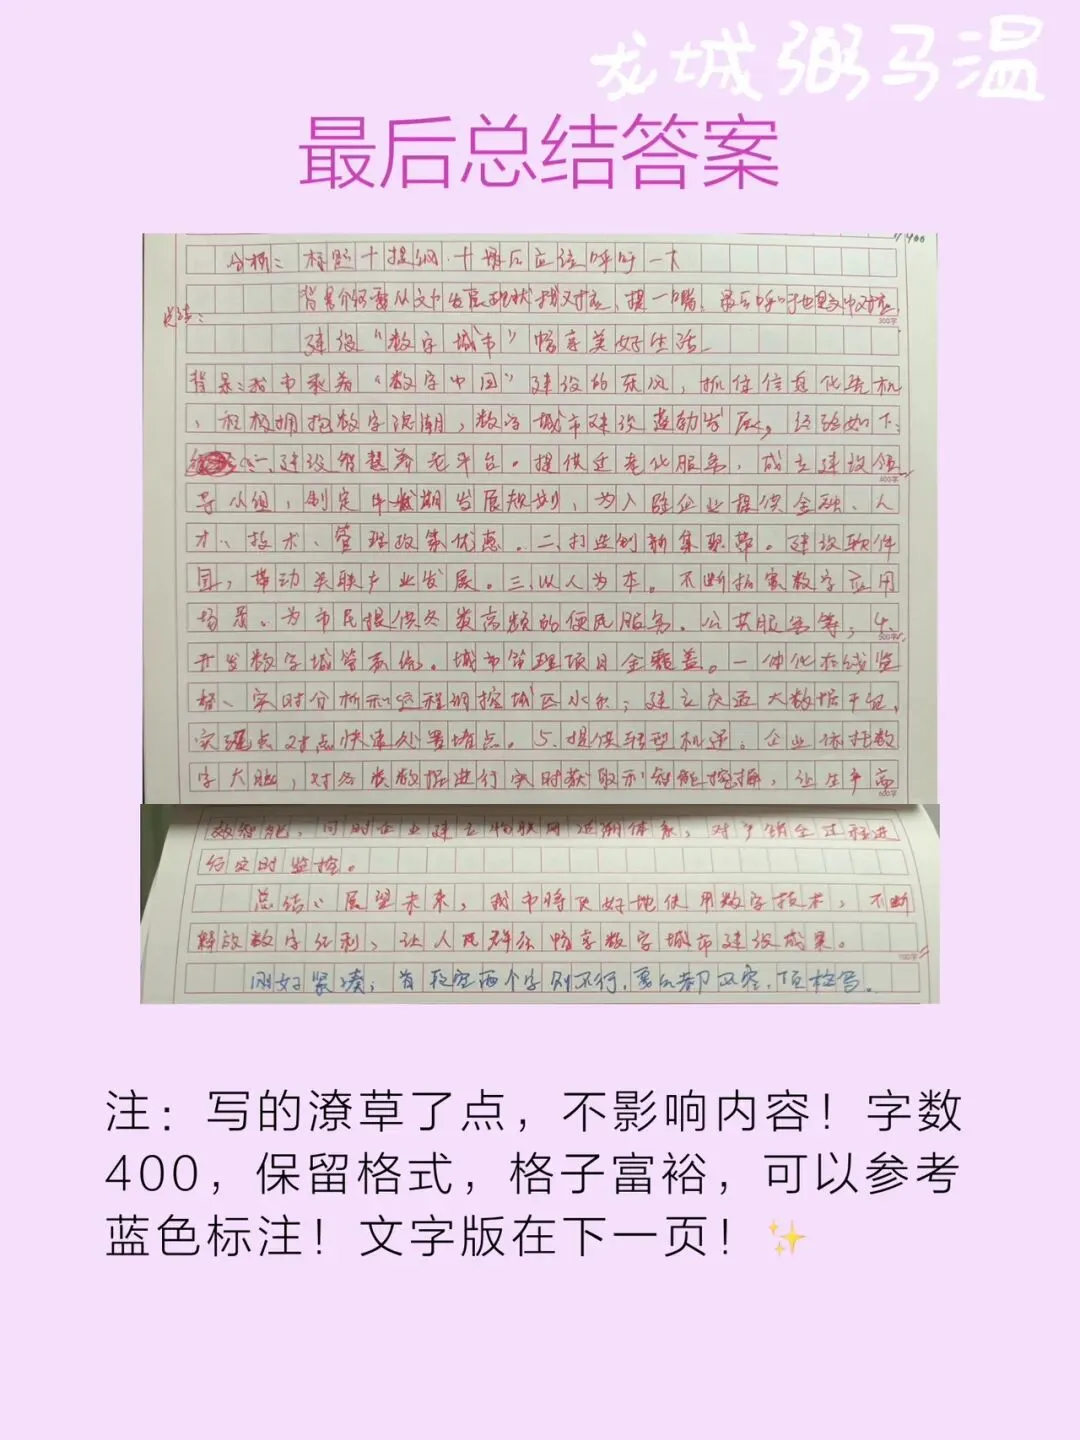 龙城弼马温
最后总结答案
分析：标题十提纲十期后应该呼吁一下
背景介绍要从文中发展现状找对应，提一嘴，最后呼吁也要从中对应
总结：
建设“数字城市”畅享美好生活
背景：我市乘着“数字中国”建设的东风，抓住信息化先机
，积极拥抱数字浪潮，数字城市建设蓬勃发展，经验如下：
一、建设智慧养老平台。提供适老化服务，成立建设领
导小组，制定中长期发展规划，为入驻企业提供金融、人
才、技术、管理政策优惠。二、打造创新集聚带。建设软件
园，带动关联产业发展。三、以人为本。不断拓宽数字应用
场景、为市民提供各类高频的便民服务、公共服务等；4、
开发数字城管系统。城市管理项目全覆盖。一体化在线监
督、实时分析和远程调控城区水系；建立交通大数据平台，
实现点对点快速处置堵点。5、提供转型机遇。企业依托数
字大脑，对各类数据进行实时获取和智能挖掘，让生产高
效智能，同时企业建立物联网追溯体系，对产销全过程进
行实时监控。
总结：展望未来，我市将更好地使用数字技术，不断
释放数字红利，让人民群众畅享数字城市建设成果。
刚好紧凑，首段空两个字则不行，要么都不空，顶格写。
注：写的潦草了点，不影响内容！字数
400，保留格式，格子富裕，可以参考
蓝色标注！文字版在下一页！✨